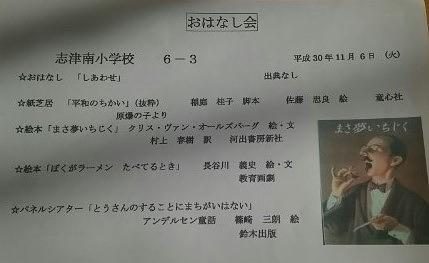 おはなし会
志津南小学校 6-3 平成30年11月6日 (火)
☆おはなし 「しあわせ」 出典なし
☆紙芝居 「平和のちかい」(抜粋) 稲庭 桂子 脚本 佐藤 忠良 絵 童心社
原爆の子より
☆絵本「まさ夢いちじく」 クリス・ヴァン・オールズバーグ 絵・文
村上 春樹 訳 河出書房新社
☆絵本「ぼくがラーメン たべてるとき」 長谷川 義史 絵・文
教育画劇
☆パネルシアター「とうさんのすることにまちがいはない」
アンデルセン童話 篠崎 三朗 絵
鈴木出版
まさ夢いちじく